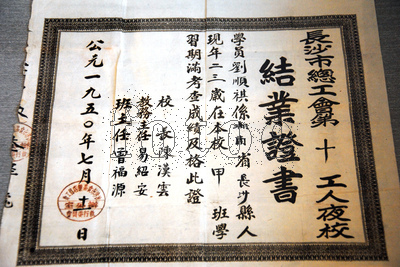 長沙市總工會第十工人夜校
結業證書
學員劉順祺係湖南省長沙縣人
現年二三歲在本校甲班學
習期滿考查成績及格此證
校長陳漢雲
教務主任易紹安
班主任晉福源
公元一九五〇年七月十一日